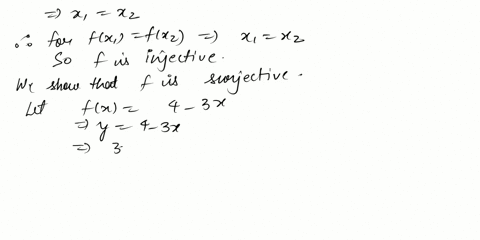 ⇒ x₁ = x₂
∴ for f(x₁) = f(x₂) ⇒ x₁ = x₂
So f is injective.
We show that f is surjective.
Let f(x) = 4 - 3x
⇒ y = 4 - 3x
⇒ 3